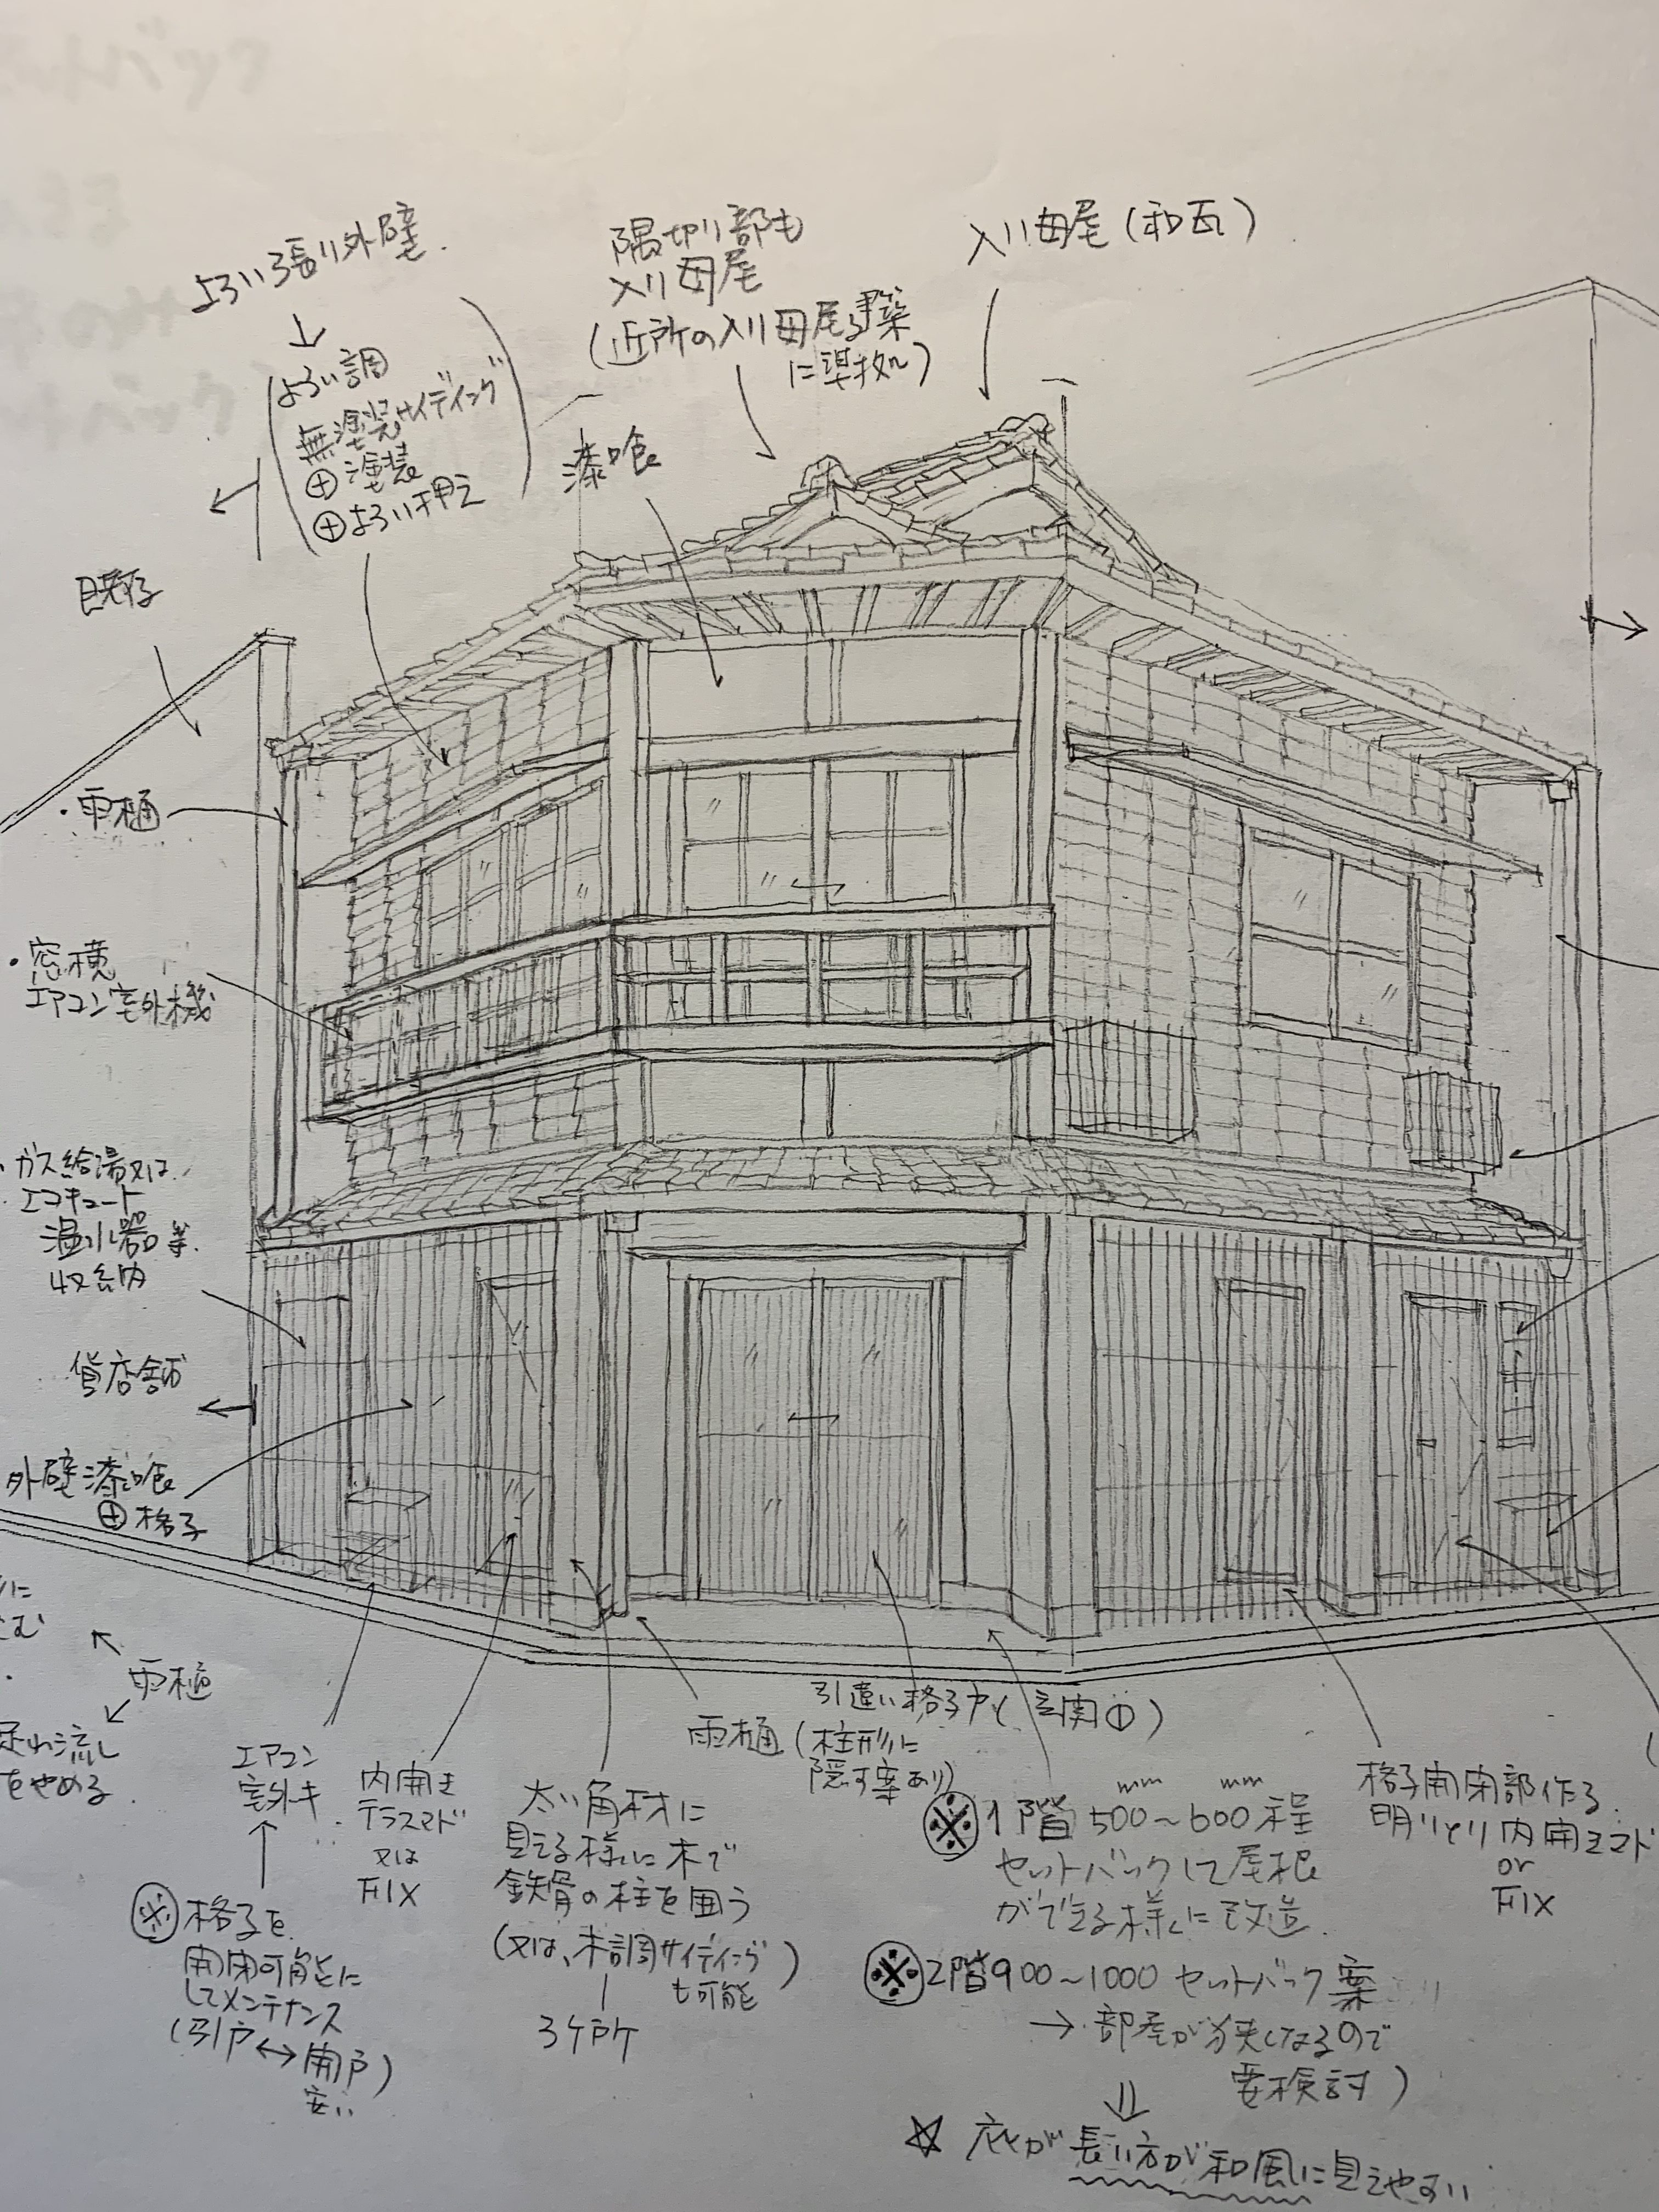 よろい張り外壁
(よろい調
無塗装サイディング
⊕塗装
⊕よろい押え)
隅切り部も
入り母屋
(近所の入り母屋建築
に準拠)
入り母屋(和瓦)
漆喰
既存
・雨樋
・窓横
エアコン室外機
・ガス給湯又は
エコキュート
温水器等
収納
貸店舗
外壁漆喰
⊕格子
雨樋
をやめる
エアコン
室外キ
※格子を
開閉可能に
してメンテナンス
(引戸↔開戸)
安い
内開き
テラスマド
又は
FIX
太い角材に
見える様に木で
鉄骨の柱を囲う
(又は、木調サイディング
も可能)
3ヶ所
雨樋(柱形に
隠す案あり)
引違い格子戸(玄関①)
※1階500mm~600mm程
セットバックして屋根
ができる様に改造
※2階900~1000セットバック案
→部屋が狭くなるので
要検討)
⇓
☆庇が長い方が和風に見えやすい
格子開閉部作る
明りとり内開きマド
or
FIX